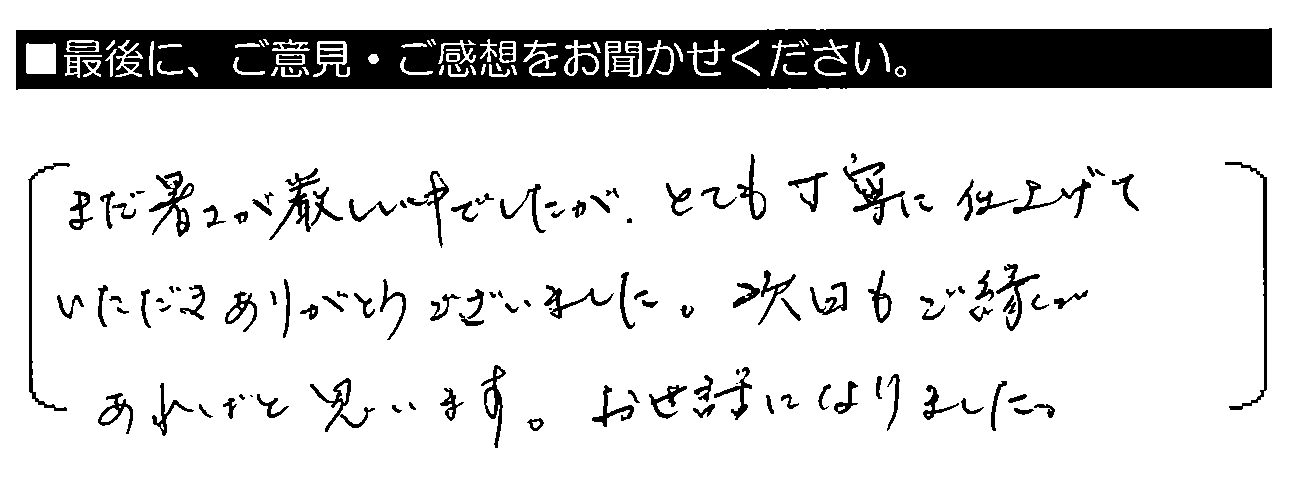 ■最後に、ご意見・ご感想をお聞かせください。
まだ暑さが厳しい中でしたが、とても丁寧に仕上げて
いただきありがとうございました。次回もご縁が
あればと思います。お世話になりました。